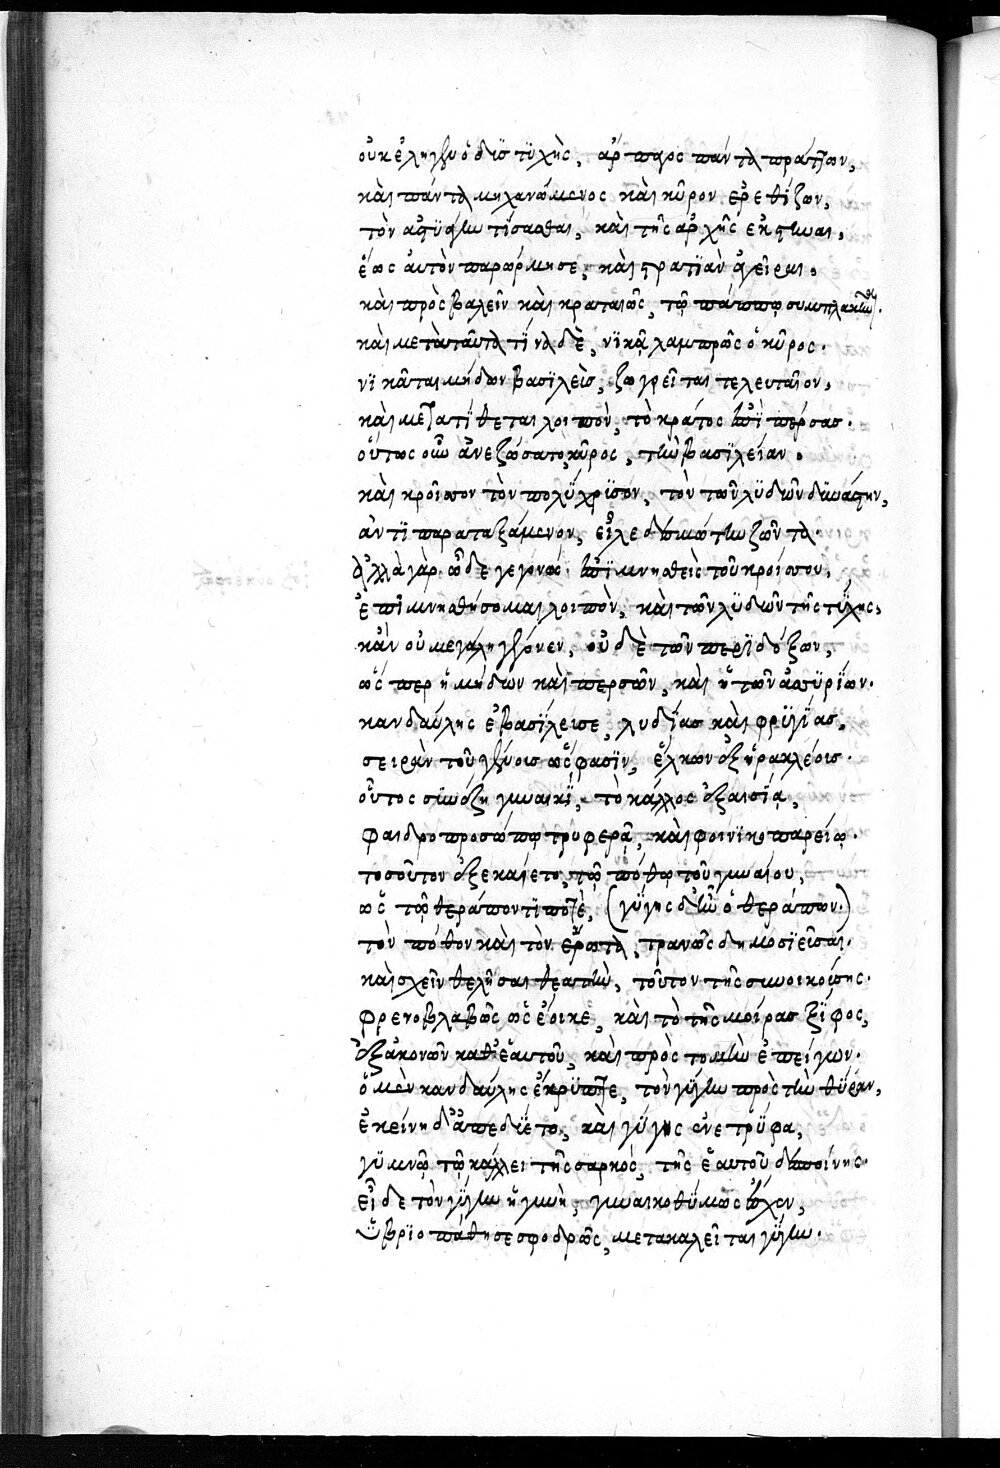 οὐκ ἔληγεν ὁ δυστυχὴς, ἅρπαγος πάντα πράττων,
καὶ πάντα μηχανώμενος καὶ κῦρον ἐρεθίζων,
τὸν ἀστυάγην τίσασθαι, καὶ τῆς ἀρχῆς ἐκστῆναι,
ἕως αὐτὸν παρώρμησε, καὶ στρατιὰν ἀγεῖραι.
καὶ προσβαλεῖν καὶ κραταιῶς, τῷ πάππῳ συμπλακῆναι.
καὶ μετὰ ταῦτα τίνα δὲ, νϊκᾷ λαμπρῶς ὁ κῦρος.
νϊκᾶται μήδων βασϊλεὺς, ζωγρεῖται τελευταῖον,
καὶ μετατίθεται λοιπὸν, τὸ κράτος ἐπὶ πέρσας.
οὕτως οὖν ἀνεζώσατο κῦρος, τὴν βασϊλείαν.
καὶ κροῖσον τὸν πολύχρϋσον, τὸν τῶν λϋδῶν δϋνάστην,
ἀντϊπαραταξάμενον, εἷλε δεσμώτην ζῶντα.
ἀλλὰ γὰρ ὧδε γεγονὼς ἐπϊμνησθεὶς τοῦ κροίσου,
ἐπϊμνησθήσομαι λοιπὸν, καὶ τῶν λϋδῶν τῆς τύχης,
κἂν οὐ μεγάλη γέγονεν, οὐδὲ τῶν περϊδόξων,
ὥσπερ ἡ μήδων καὶ περσῶν, καὶ ἡ τῶν ἀσσϋρίων.
κανδαύλης ἐβασίλευσε, λυδίας καὶ φρϋγίας,
σειρὰν τοῦ γένους ὥς φασϊν, ἕλκων ἐξ ἡρακλέους.
οὗτος συνώζη γυναικὶ, τὸ κάλλος ἐξαισίᾳ,
φαιδροπροσώπῳ τρυφερᾷ, καὶ φοινϊκοπαρείῳ.
τοσοῦτον ἐξεκαίετο, τῷ πόθῳ τοῦ γυναίου,
ὡς τῷ θεράποντϊ ποτὲ, (γύγης δ' ἦν ὁ θεράπων.)
τὸν πόθον καὶ τὸν ἔρωτα, τρανῶς δημοσϊεῦσαι.
καὶ σχεῖν θελῆσαι θεατὴν, τοῦτον τῆς συνοικούσης.
φρενοβλαβῶς ὡς ἔοικε, καὶ τὸ τῆς μοίρας ξίφος,
ἐξακονῶν καθ' ἑαυτοῦ, καὶ πρὸς τομὴν ἐπείγων.
ὁ μὲν κανδαύλης ἔκρϋπτε, τὸν γύγην πρὸς τὴν θύραν,
ἐκείνη δ' ἀπεδύετο, καὶ γύγης ἐνετρύφα,
γϋμνῷ τῷ κάλλει τῆς σαρκὸς, τῆς ἑαυτοῦ δεσποίνης.
εἶδε τὸν γύγην ἡ γυνὴ, γυναικοθύμως ἔσχεν,
ὑβρϊοπάθησε σφοδρῶς, μετακαλεῖται γύγην.